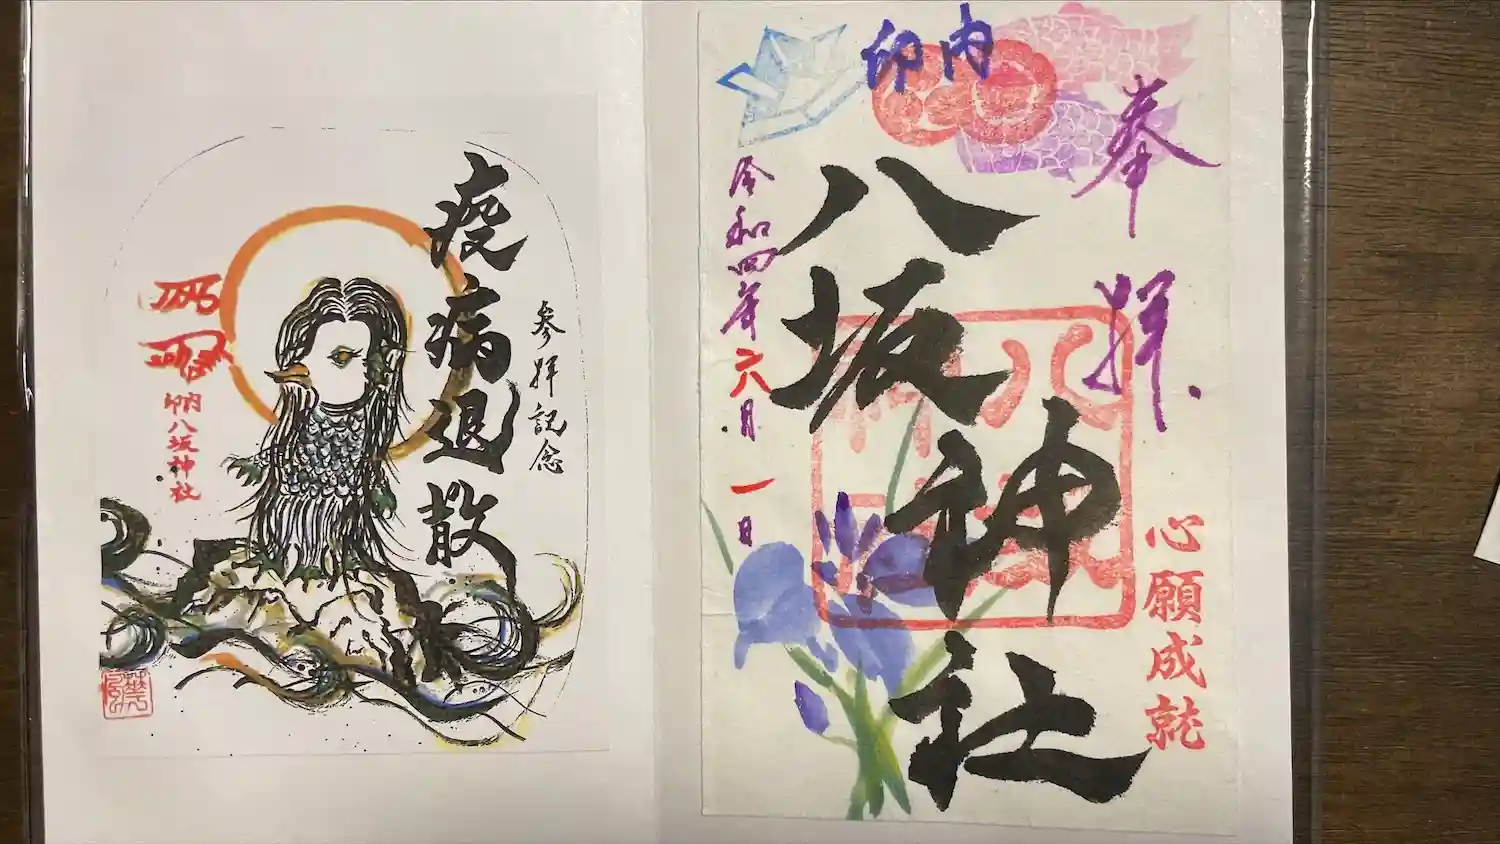 参拝記念
疫病退散
印内八坂神社
印内
奉拝
心願成就
八坂神社
令和四年六月一日